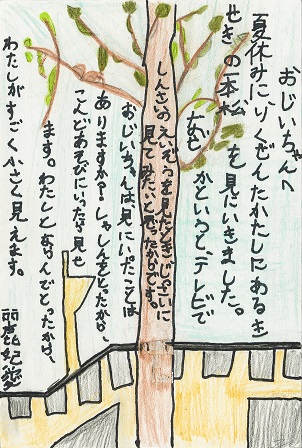 おじいちゃんへ
夏休みに、りくぜんたかたしにあるき
せきの一本松を見にいきました。
なぜかというと、テレビで
しんさいのえいぞうを見たときに、じっさいに
見てみたいと思ったからです。
おじいちゃんは、見にいったことは
ありますか?しゃしんをとったから、
こんどあそびにいったら見せ
ます。わたしとならんでとったから、
わたしがすごく小さく見えます。